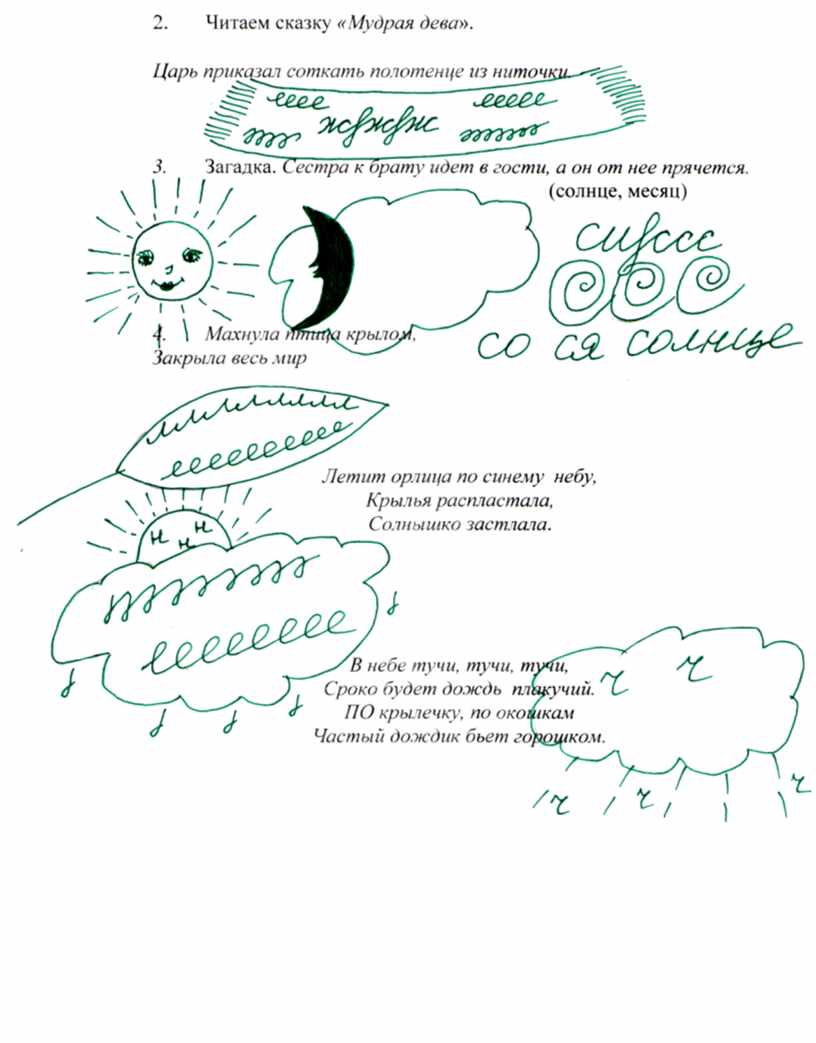 2. Читаем сказку «Мудрая дева».
Царь приказал соткать полотенце из ниточки.
3. Загадка. Сестра к брату идет в гости, а он от нее прячется.
(солнце, месяц)
со ся солнце
4. Махнула птица крылом,
Закрыла весь мир
Летит орлица по синему небу,
Крылья распластала,
Солнышко застлала.
н н н
В небе тучи, тучи, тучи,
Сроко будет дождь плакучий.
ПО крылечку, по окошкам
Частый дождик бьет горошком.
ч ч
ч ч ч